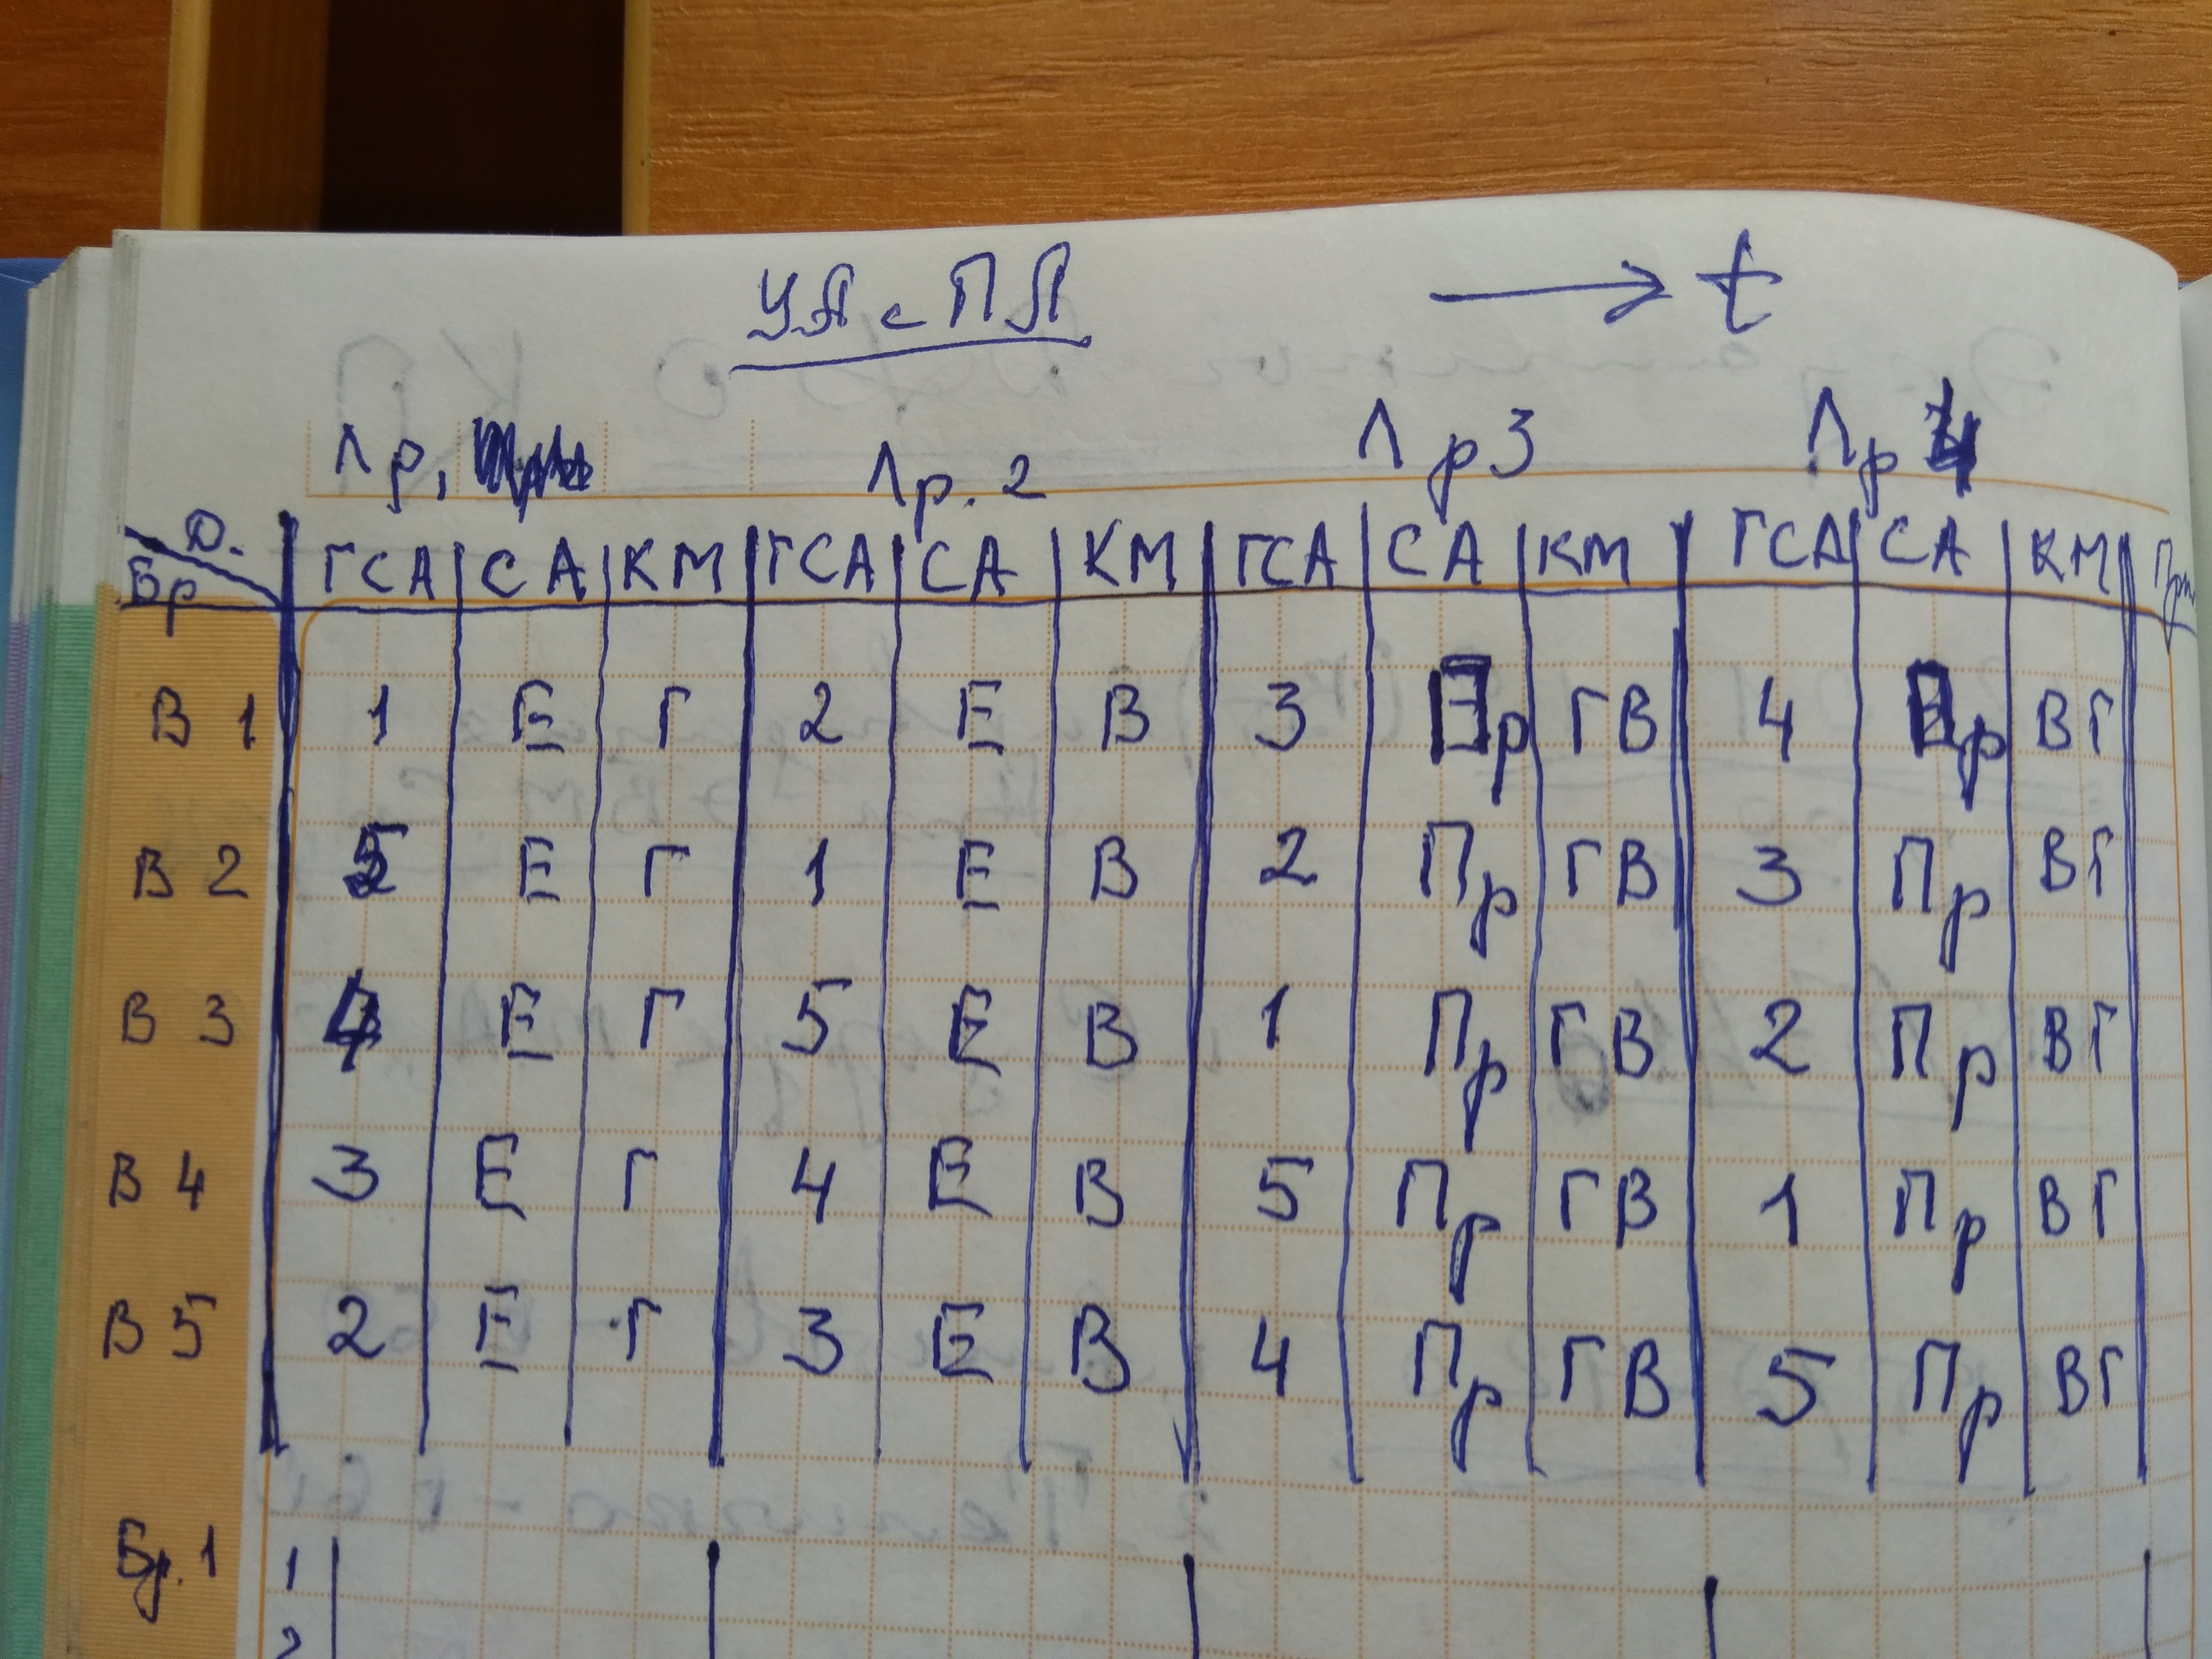 УА с ПЛ → t
Лр, Лр. 2 Лр 3 Лр 4
О.
Бр ГСА СА КМ ГСА СА КМ ГСА СА КМ ГСА СА КМ
В 1 1 Е Г 2 Е В 3 Пр ГВ 4 Пр ВГ
В 2 5 Е Г 1 Е В 2 Пр ГВ 3 Пр ВГ
В 3 4 Е Г 5 Е В 1 Пр ГВ 2 Пр ВГ
В 4 3 Е Г 4 Е В 5 Пр ГВ 1 Пр ВГ
В 5 2 Е Г 3 Е В 4 Пр ГВ 5 Пр ВГ
Бр. 1 1
2